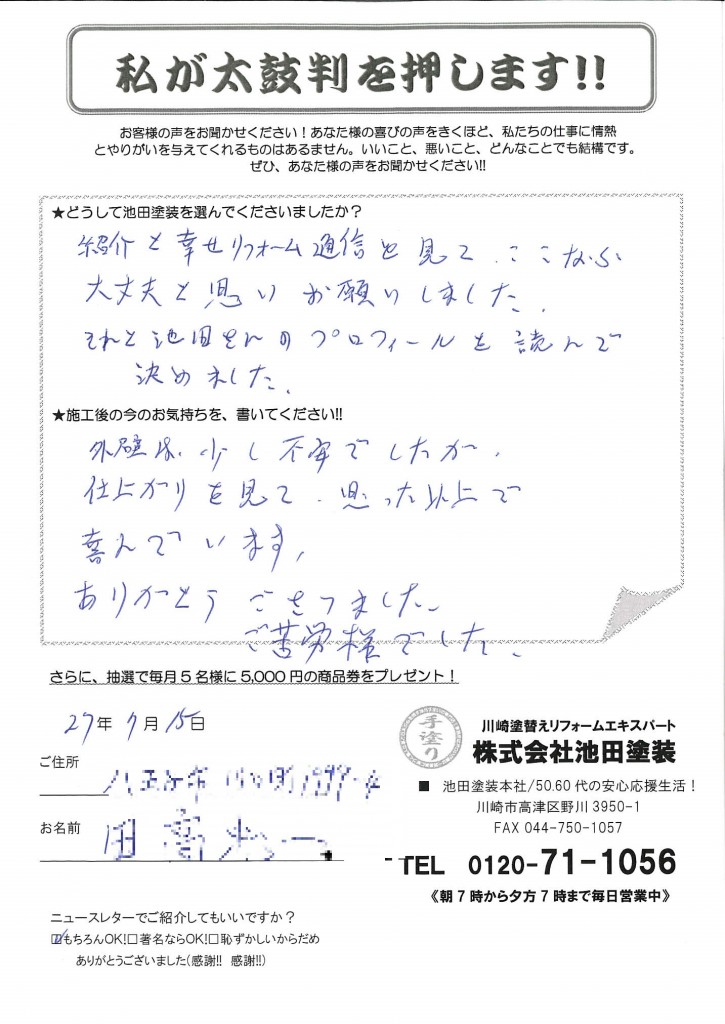 私が太鼓判を押します!!
お客様の声をお聞かせください！あなた様の喜びの声をきくほど、私たちの仕事に情熱
とやりがいを与えてくれるものはあるません。いいこと、悪いこと、どんなことでも結構です。
ぜひ、あなた様の声をお聞かせください!!
★どうして池田塗装を選んでくださいましたか？
紹介と幸せリフォーム通信を見て、ここなら
大丈夫と思いお願いしました。
それと池田さんのプロフィールを読んで
決めました。
★施工後の今のお気持ちを、書いてください!!
外壁は、少し不安でしたが、
仕上がりを見て、思った以上で
喜んでいます。
ありがとうございました。
ご苦労様でした。
さらに、抽選で毎月5名様に5,000円の商品券をプレゼント！
27年7月15日
ご住所
お名前
手塗り
川崎塗替えリフォームエキスパート
株式会社池田塗装
■ 池田塗装本社/50.60代の安心応援生活！
川崎市高津区野川3950-1
FAX 044-750-1057
TEL 0120-71-1056
《朝7時から夕方7時まで毎日営業中》
ニュースレターでご紹介してもいいですか？
☑もちろんOK!□著名ならOK!□恥ずかしいからだめ
ありがとうございました(感謝!! 感謝!!)